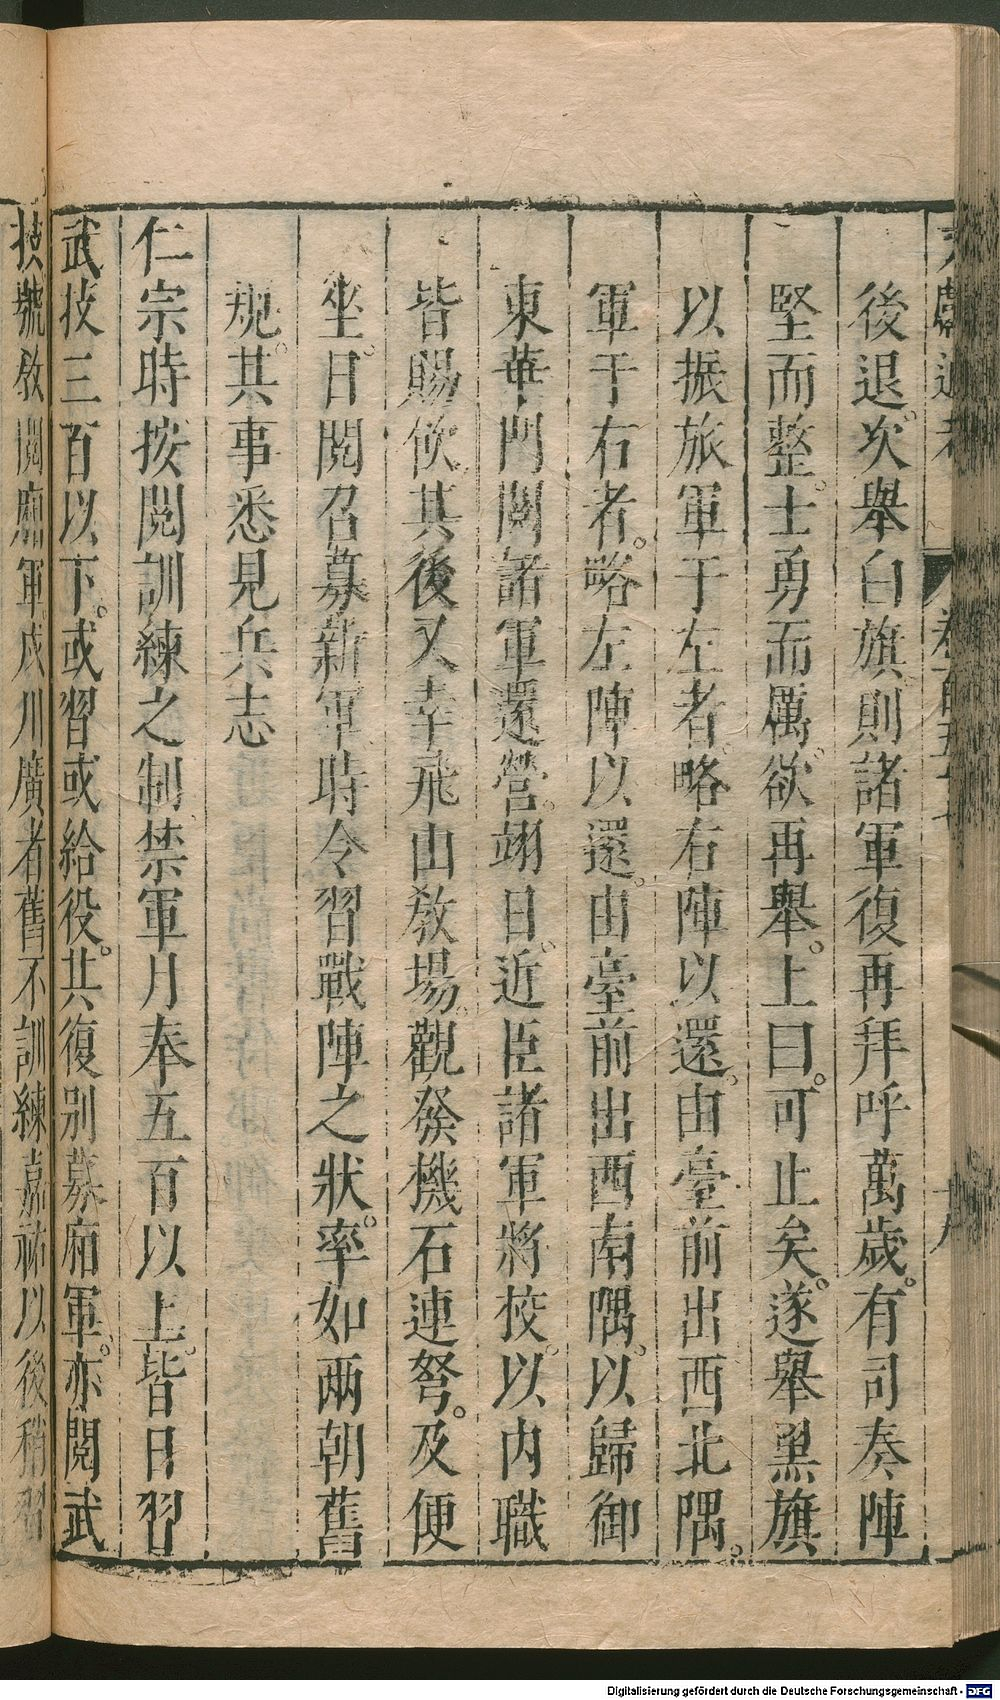 後退。次舉白旗則諸軍復再拜呼萬歲。有司奏陣
堅而整。士勇而厲。欲再舉。上曰。可止矣。遂舉黑旗
以振旅軍于左者。略右陣以還。由臺前出西北隅。
軍于右者。略左陣以還。由臺前出西南隅。以歸御
東華門閱諸軍還營。翊日。近臣諸軍將校。以內職
皆賜飲。其後又幸飛山教場。觀發機石連弩。及便
坐。日閱召募新軍。時令習戰陣之狀。率如兩朝舊
規。其事悉見兵志
仁宗時按閱訓練之制。禁軍月奉五百以上。皆日習
武技三百以下。或習或給役。其復別募廂軍。亦閱武
技號教閱廂軍戍川廣者舊不訓練嘉祐以後稍習
Digitalisierung gefördert durch die Deutsche Forschungsgemeinschaft - DFG